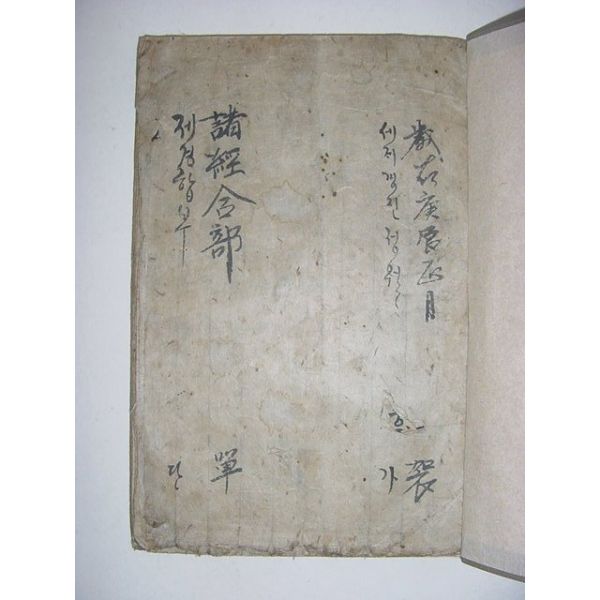 歲在庚辰正月
세지경진졍월
袈
가
諸經合部
제경합부
單
단